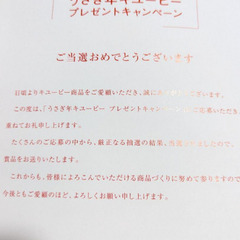 うさぎ年キユーピー
プレゼントキャンペーン
ご当選おめでとうございます
日頃よりキユーピー商品をご愛顧いただき、誠に
この度は、「うさぎ年キユーピー プレゼントキャンペーン」
重ねてお礼申し上げます。
たくさんのご応募の中から、厳正なる抽選の結果、当選
賞品をお送りいたします。
これからも、皆様によろこんでいただける商品づくりに努めて参りますので
今後ともご愛顧のほど、よろしくお願い申し上げます。